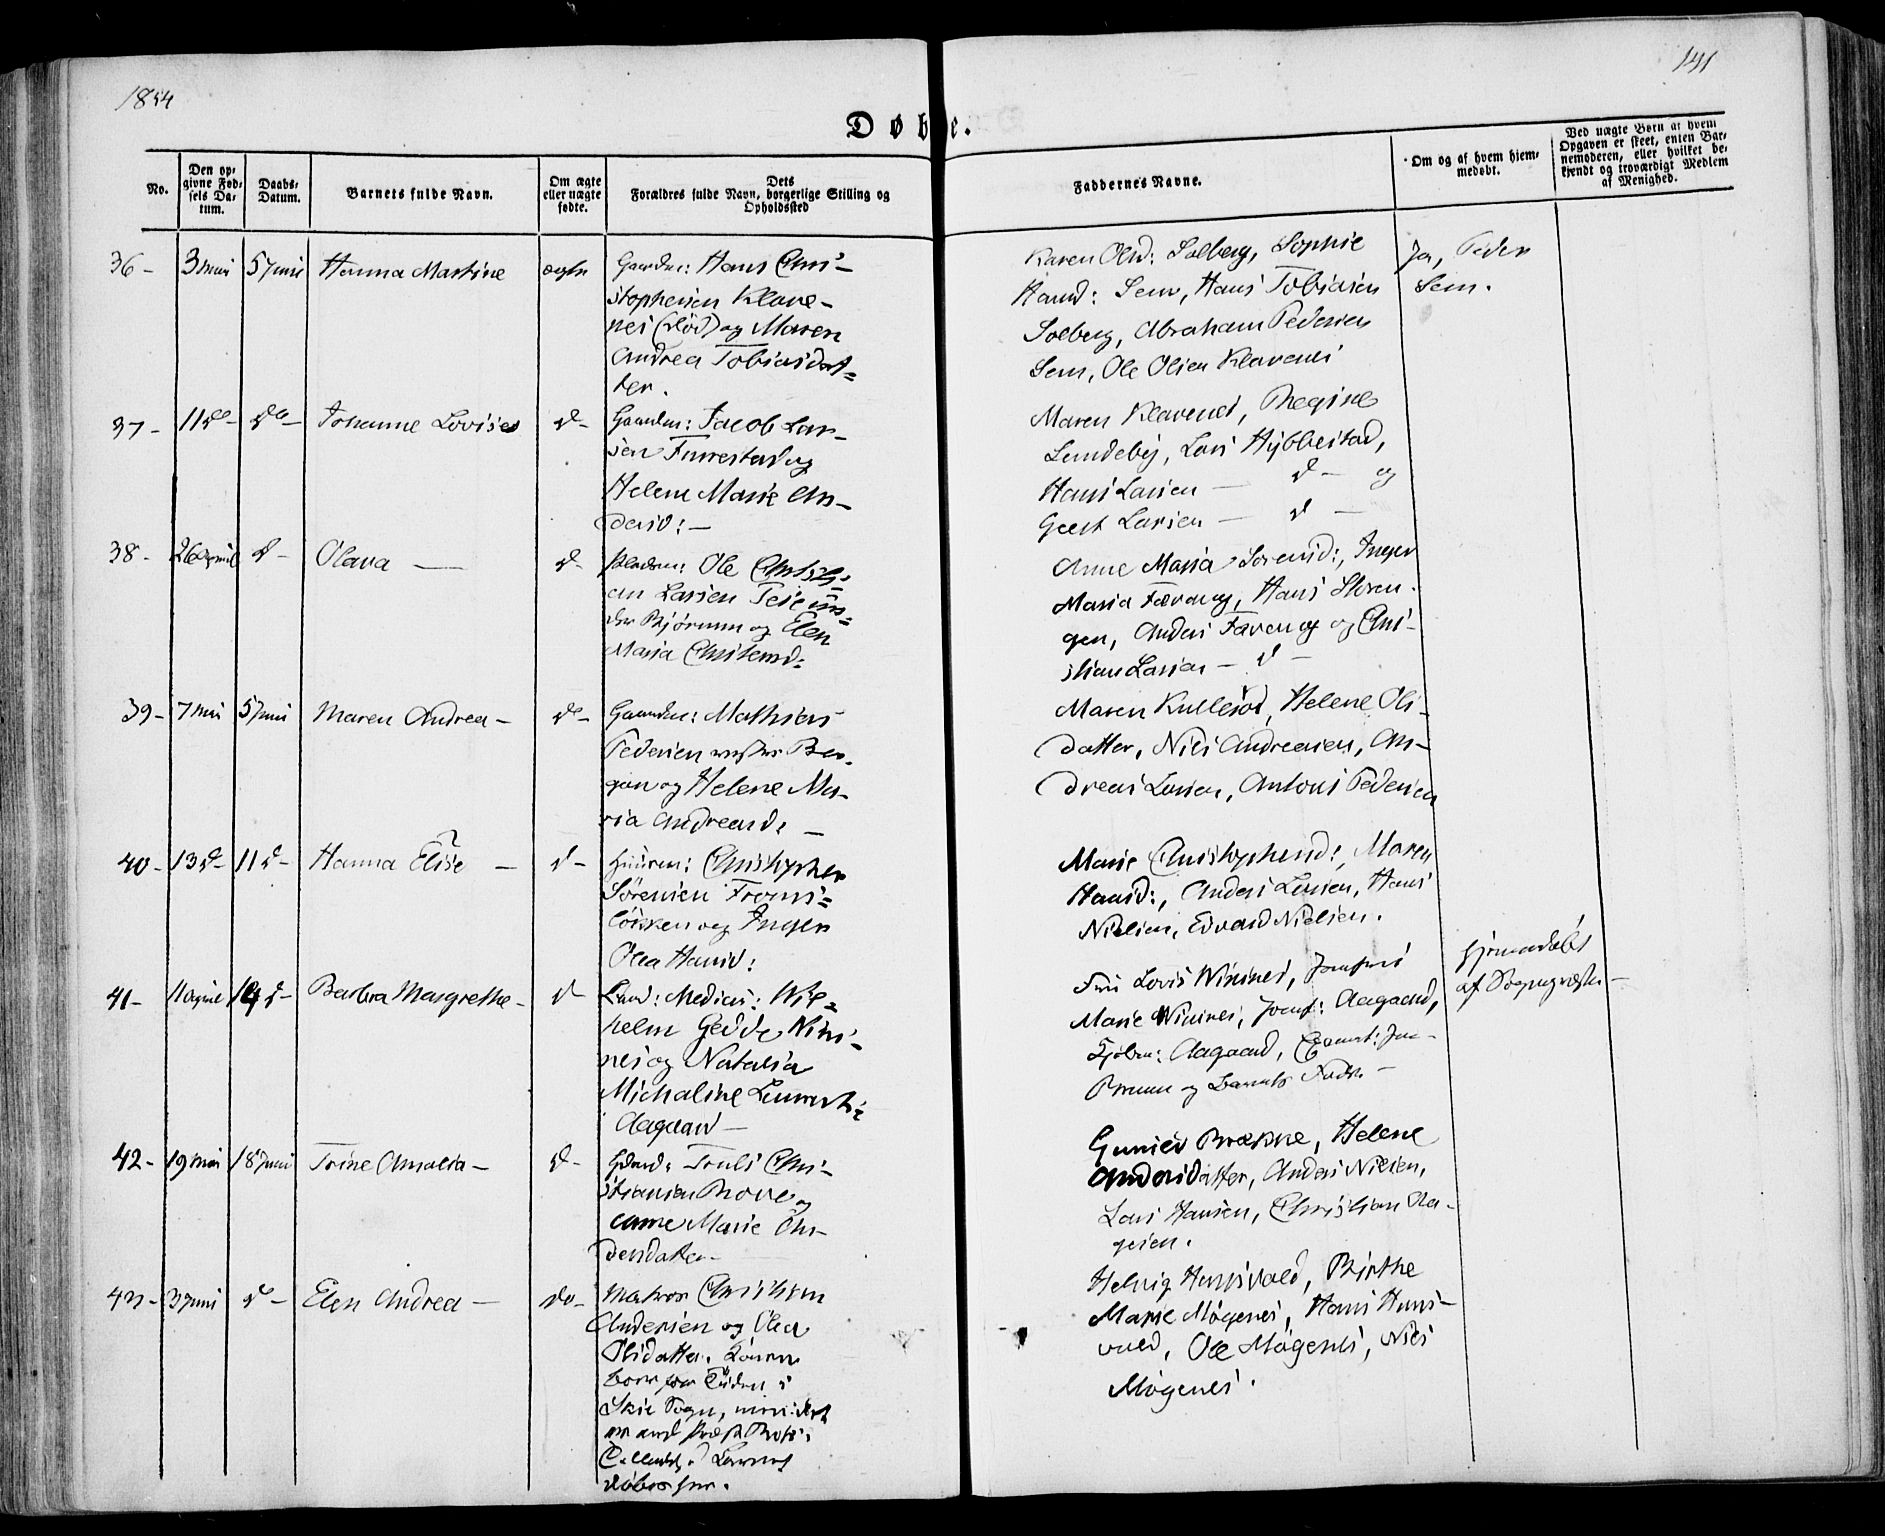 1854
141
Døbte.
No.
Den op-
givne Fød-
sels Da-
tum.
Daabs-
Datum.
Barnets fulde Navn.
Om ægte
eller uægte
fødte.
Dets
Forældres fulde Navn, borgerlige Stilling og
Opholdssted
Faddernes Navne.
Om og af hvem hjem-
medøbt.
Ved uægte Børn af hvem
Opgaven er skeet, enten Bar-
nemoderen, eller hvilket be-
kjendt og troværdigt Medlem
af Menighed.
36- 3 Mai 5 Juni Hanna Martine ægte
Gaardm: Hans Chri-
stophersen Klave-
nes (død) og Maren
Andrea Tobiasdat=
ter.
Karen Olsd: Solberg, Sophie
Hansd: Sem, Hans Tobiasen
Solberg, Abraham Pedersen
Sem, Ole Olsen Klavenes
Ja, Peder
Sem.
37- 11 do- do- Johanne Lovise d-
Gaardm: Jacob Lar-
sen Furrestad og
Helene Marie An-
dersd:-
Maren Klavenes, Regine
Lundeby, Lars Hybbestad,
Hans Larsen - d- og
Geert Larsen - d-
38- 26 April d- Olava - d-
Ole Christi=
an Larsen Teie un=
der Bjørnum og Elen
Maria Christensd:
Anne Maria Sørensd:, Inger
Maria Farmog, Hans Skren-
gen, Anders og Chri-
stian Larsen - d-
39- 7 Mai 5 Juni Maren Andrea- do-
Gaardm: Mathias
Pedersen Ber-
gan og Helene Ma-
ria Andreasd: -
Maren Kullerød, Helene Ols-
datter, Niels Andreasen, An-
dreas Larsen, Antons Pedersen
40- 13 d- 11 d- Hanna Elise - d-
Huusm: Christopher
Sørensen Froms=
løkken og Inger
Olea Hansd:
Marie Christophersd:, Maren
Hansd:, Anders Larsen, Hans
Nielsen, Edvard Nielsen.
41- 11 April 14 d- Barbra Margrethe- d-
Cand: Medicin: Wil=
helm Gedde Wini-
nes og Natalia
Michaline
Aagaard -
Fru Lovis Winines, Jomfrue
Marie Winines, Jomf: Aagaard,
Kjøbm: Aagaard,
Bruun og Barnets Fader -
hjemmedøbt
af Sognepræsten-
42- 19 Mai 18 Juni Trine Amalia- d-
Gaard: Truls Chri-
stiansen Rove og
Anne Marie An-
dersdatter-
Gunild Brekke, Helene
Andersdatter, Anders Nielsen,
Lars Hansen, Christian Aa-
gesen.
43- 3 Juni d- Elen Andrea- do-
Matros Christian
Andersen og Olea
Olsdatter.
i
Skie Sogn,
Helvig Hunsvald, Birthe
Marie Møgenes, Hans Huns-
vald, Ole Møgenes, Niels
Møgenes.